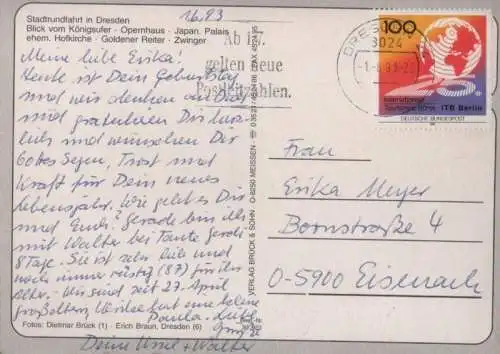 Stadtrundfahrt in Dresden
Blick vom Königsufer - Opernhaus - Japan. Palais
ehem. Hofkirche - Goldener Reiter - Zwinger
1.6.93
Meine liebe Erika!
Heute ist Dein Geburtstag
und wir denken an Dich
und gratulieren Dir herz-
lich und wünschen Dir
Gottes Segen, Trost und
Kraft für Dein neues
Lebensjahr. Wie geht es Dir
und Euch? Gerade bin ich
mit Walter bei Tante
8 Tage. Sie ist sehr lieb und
noch immer rüstig (87) für ihr
Alter. Wir sind seit 27. April
Großeltern, hat eine kleine
Grüße
Deine + Walter
Fotos: Dietmar Brück (1) - Erich Braun, Dresden (6)
VERLAG BRÜCK & SOHN · O-8250 MEISSEN
Ab 1.
gelten neue
Postleitzahlen.
DRESDEN
3024
100
Internationale
Tourismus-Börse ITB Berlin
DEUTSCHE BUNDESPOST
Frau
Erika Meyer
Bornstraße 4
O-5900 Eisenach